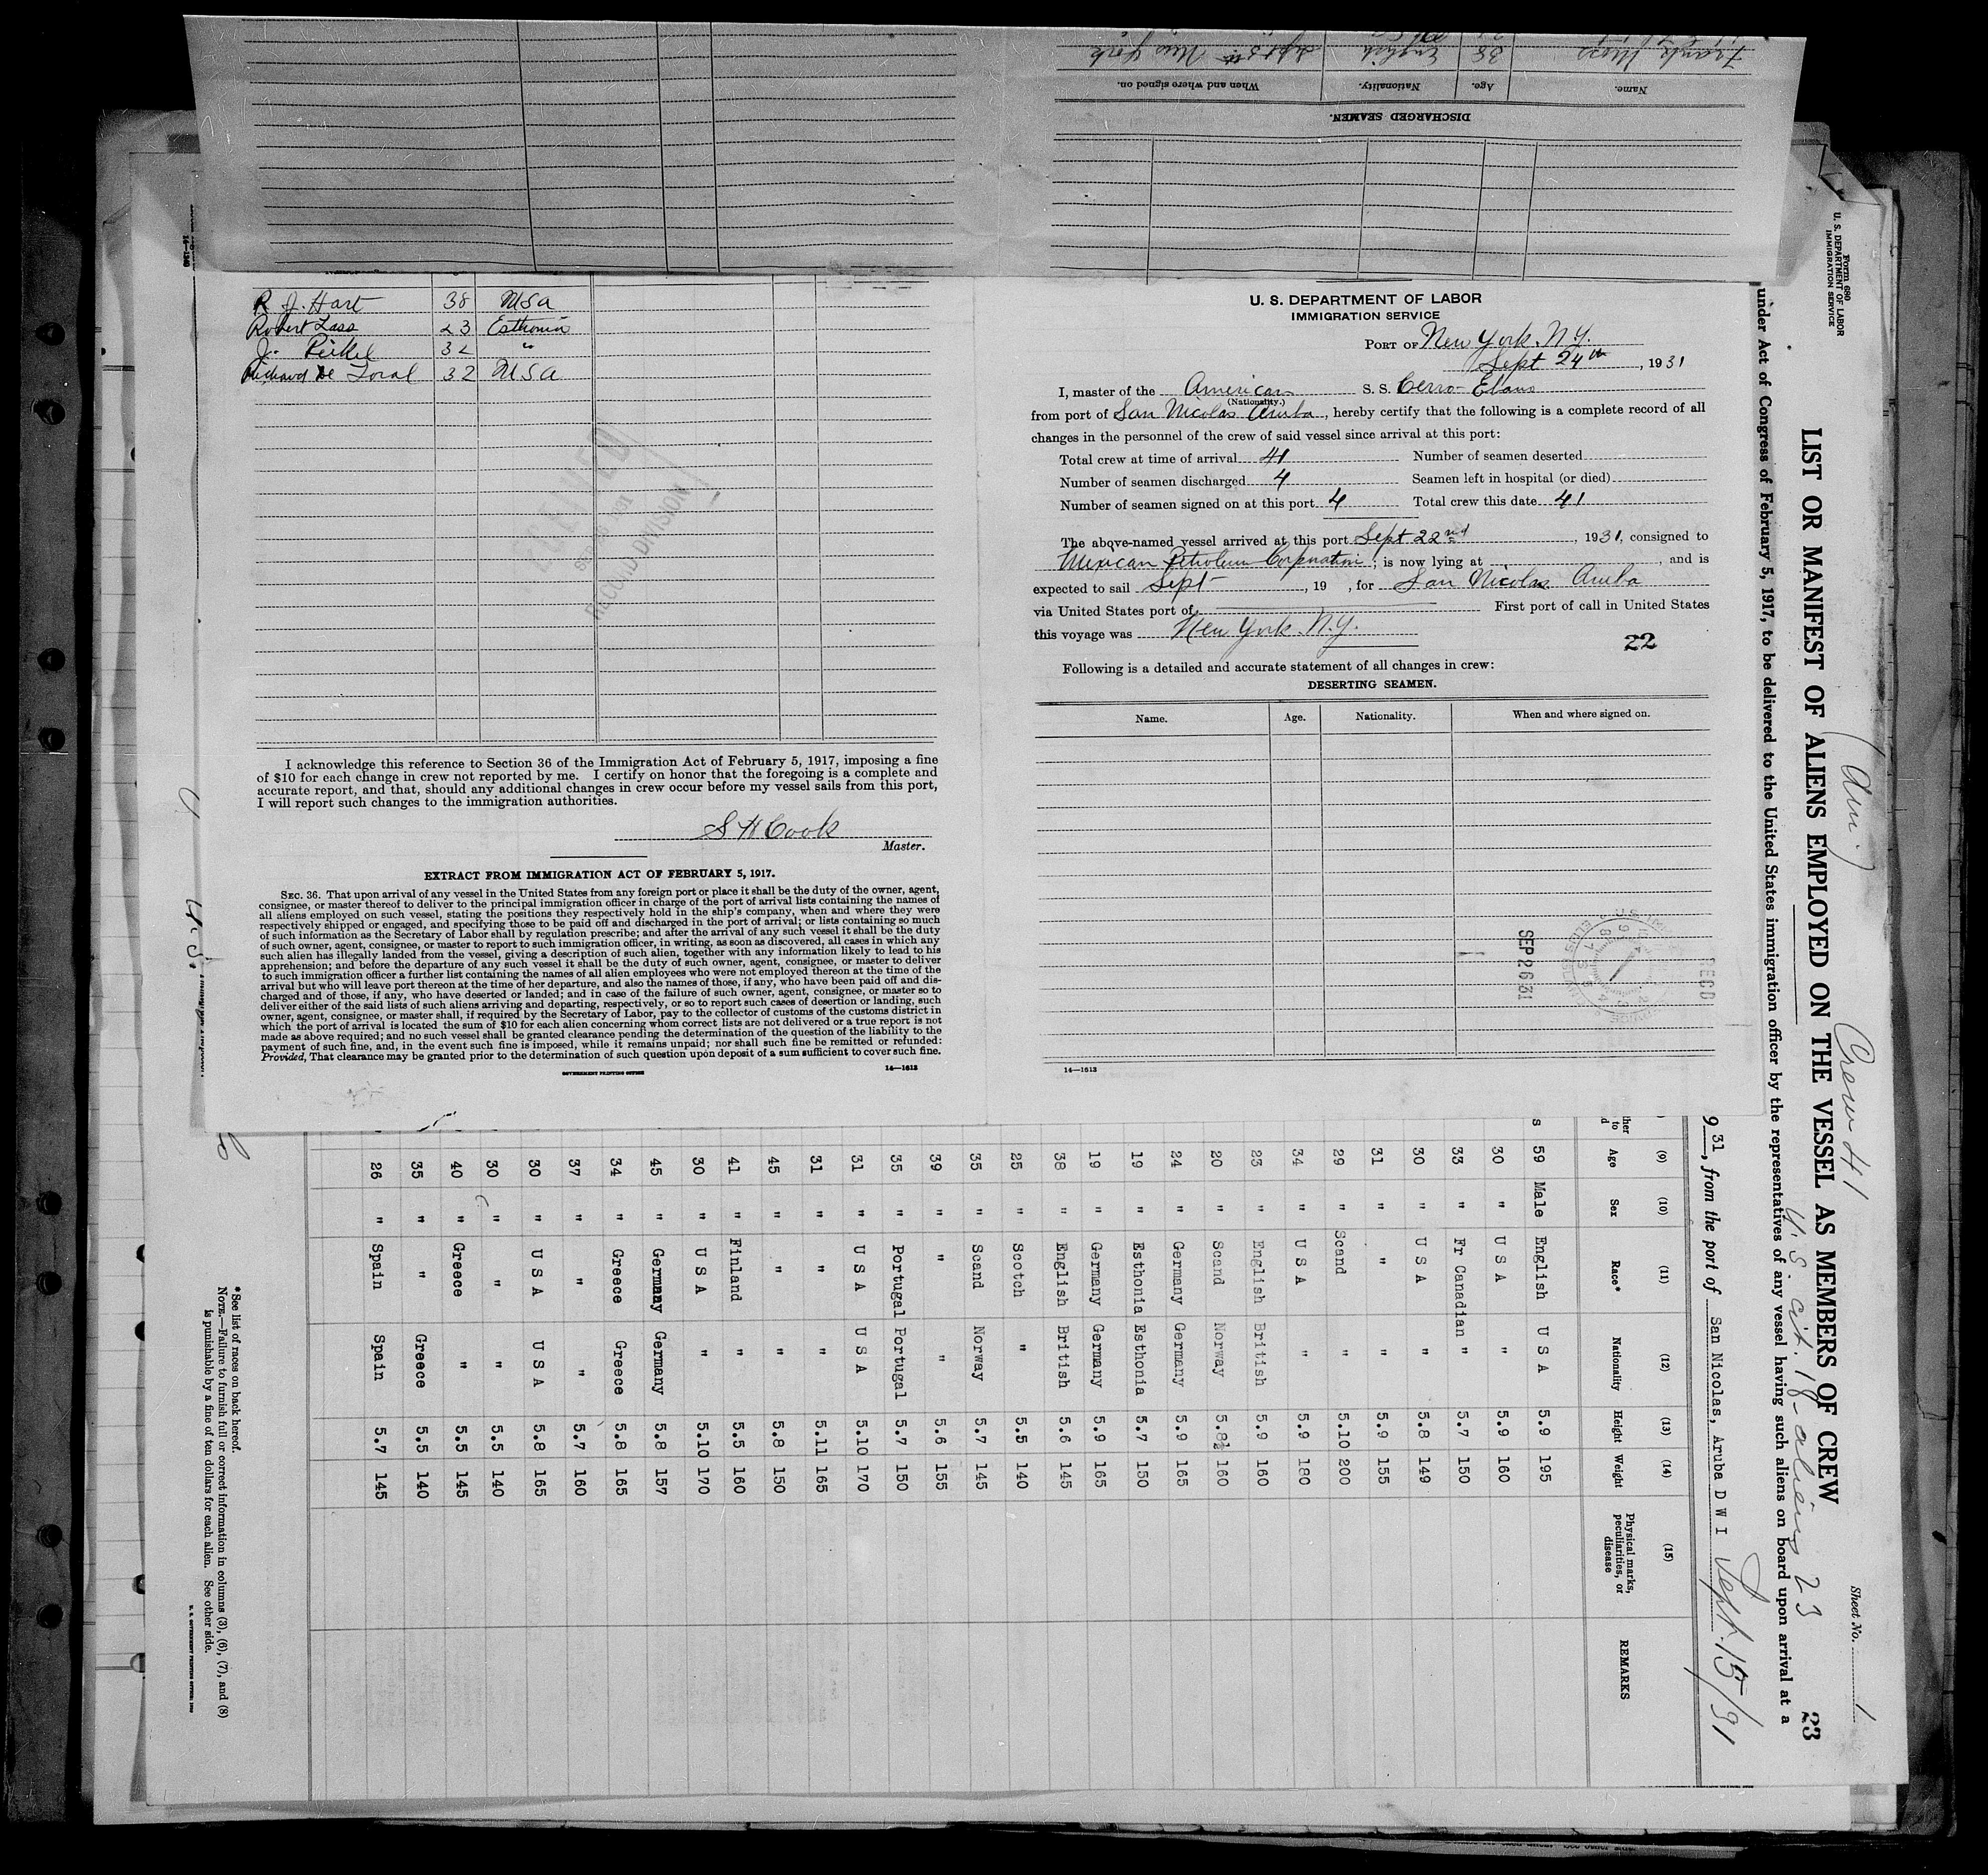 Name. Age. Nationality. When and where signed on.
Frank 38 English Sept New York
DISCHARGED SEAMEN.
R. J. Hart 38 USA
Robert Lass 23 Esthonia
J. 32 "
Richard De Toral 32 USA
I acknowledge this reference to Section 36 of the Immigration Act of February 5, 1917, imposing a fine
of $10 for each change in crew not reported by me. I certify on honor that the foregoing is a complete and
accurate report, and that, should any additional changes in crew occur before my vessel sails from this port,
I will report such changes to the immigration authorities.
S H Cook
Master.
EXTRACT FROM IMMIGRATION ACT OF FEBRUARY 5, 1917.
SEC. 36. That upon arrival of any vessel in the United States from any foreign port or place it shall be the duty of the owner, agent,
consignee, or master thereof to deliver to the principal immigration officer in charge of the port of arrival lists containing the names of
all aliens employed on such vessel, stating the positions they respectively hold in the ship's company, when and where they were
respectively shipped or engaged, and specifying those to be paid off and discharged in the port of arrival; or lists containing so much
of such information as the Secretary of Labor shall by regulation prescribe; and after the arrival of any such vessel it shall be the duty
of such owner, agent, consignee, or master to report to such immigration officer, in writing, as soon as discovered, all cases in which any
such alien has illegally landed from the vessel, giving a description of such alien, together with any information likely to lead to his
apprehension; and before the departure of any such vessel it shall be the duty of such owner, agent, consignee, or master to deliver
to such immigration officer a further list containing the names of all alien employees who were not employed thereon at the time of the
arrival but who will leave port thereon at the time of her departure, and also the names of those, if any, who have been paid off and dis-
charged and of those, if any, who have deserted or landed; and in case of the failure of such owner, agent, consignee, or master so to
deliver either of the said lists of such aliens arriving and departing, respectively, or so to report such cases of desertion or landing, such
owner, agent, consignee, or master shall, if required by the Secretary of Labor, pay to the collector of customs of the customs district in
which the port of arrival is located the sum of $10 for each alien concerning whom correct lists are not delivered or a true report is not
made as above required; and no such vessel shall be granted clearance pending the determination of the question of the liability to the
payment of such fine, and, in the event such fine is imposed, while it remains unpaid; nor shall such fine be remitted or refunded:
Provided, That clearance may be granted prior to the determination of such question upon deposit of a sum sufficient to cover such fine.
GOVERNMENT PRINTING OFFICE 14—1613
U. S. DEPARTMENT OF LABOR
IMMIGRATION SERVICE
PORT OF New York. N.Y.
Sept 24th, 1931
I, master of the American S. S. Cerro Ebano
(Nationality.)
from port of San Nicolas Aruba, hereby certify that the following is a complete record of all
changes in the personnel of the crew of said vessel since arrival at this port:
Total crew at time of arrival 41 Number of seamen deserted
Number of seamen discharged 4 Seamen left in hospital (or died)
Number of seamen signed on at this port 4 Total crew this date 41
The above-named vessel arrived at this port Sept 22nd, 1931, consigned to
Mexican Petroleum Corporation; is now lying at , and is
expected to sail Sept , 19 , for San Nicolas Aruba
via United States port of First port of call in United States
this voyage was New York. N.Y.
22
Following is a detailed and accurate statement of all changes in crew:
DESERTING SEAMEN.
Name. Age. Nationality. When and where signed on.
SEP 26 31
RECD
14—1613
Form 680
U. S. DEPARTMENT OF LABOR
IMMIGRATION SERVICE
(Am.) Crew 41 U.S. cit. 18 - aliens 23
Sheet No. 1
23
LIST OR MANIFEST OF ALIENS EMPLOYED ON THE VESSEL AS MEMBERS OF CREW
under Act of Congress of February 5, 1917, to be delivered to the United States immigration officer by the representatives of any vessel having such aliens on board upon arrival at a
9 31, from the port of San Nicolas, Aruba D W I Sept. 15/31
(9) (10) (11) (12) (13) (14) (15)
Age Sex Race* Nationality Height Weight Physical marks, peculiarities, or disease REMARKS
s 59 Male English U S A 5.9 195
30 " U S A " 5.9 160
33 " Fr Canadian " 5.7 150
30 " U S A " 5.8 149
31 " " " 5.9 155
29 " Scand " 5.10 200
34 " U S A " 5.9 180
23 " English British 5.9 160
20 " Scand Norway 5.8½ 160
24 " Germany Germany 5.9 165
19 " Esthonia Esthonia 5.7 150
19 " Germany Germany 5.9 165
38 " English British 5.6 145
25 " Scotch " 5.5 140
35 " Scand Norway 5.7 145
39 " " " 5.6 155
35 " Portugal Portugal 5.7 150
31 " U S A U S A 5.10 170
31 " " " 5.11 165
45 " " " 5.8 150
41 " Finland " 5.5 160
30 " U S A " 5.10 170
45 " Germany Germany 5.8 157
34 " Greece Greece 5.8 165
37 " " " 5.7 160
30 " U S A U S A 5.8 165
30 " " " 5.5 140
40 " Greece " 5.5 145
35 " " Greece 5.5 140
26 " Spain Spain 5.7 145
*See list of races on back hereof.
NOTE.—Failure to furnish full or correct information in columns (3), (6), (7), and (8)
is punishable by a fine of ten dollars for each alien. See other side.
U. S. GOVERNMENT PRINTING OFFICE